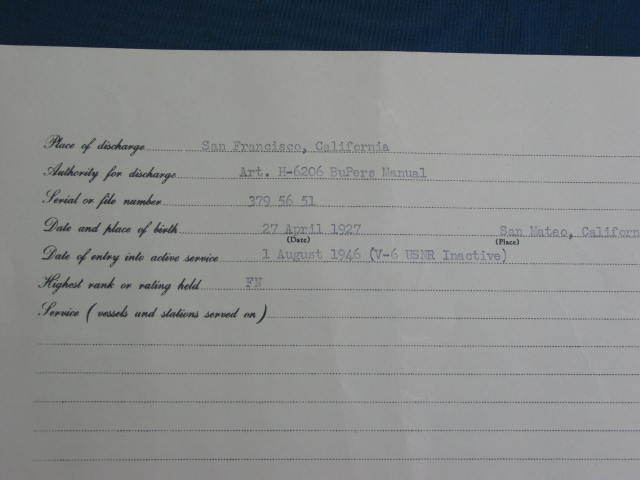 Place of discharge San Francisco, California
Authority for discharge Art. H-6206 BuPers Manual
Serial or file number 379 56 51
Date and place of birth 27 April 1927 San Mateo, Californ
(Date) (Place)
Date of entry into active service 1 August 1946 (V-6 USNR Inactive)
Highest rank or rating held FN
Service (vessels and stations served on)